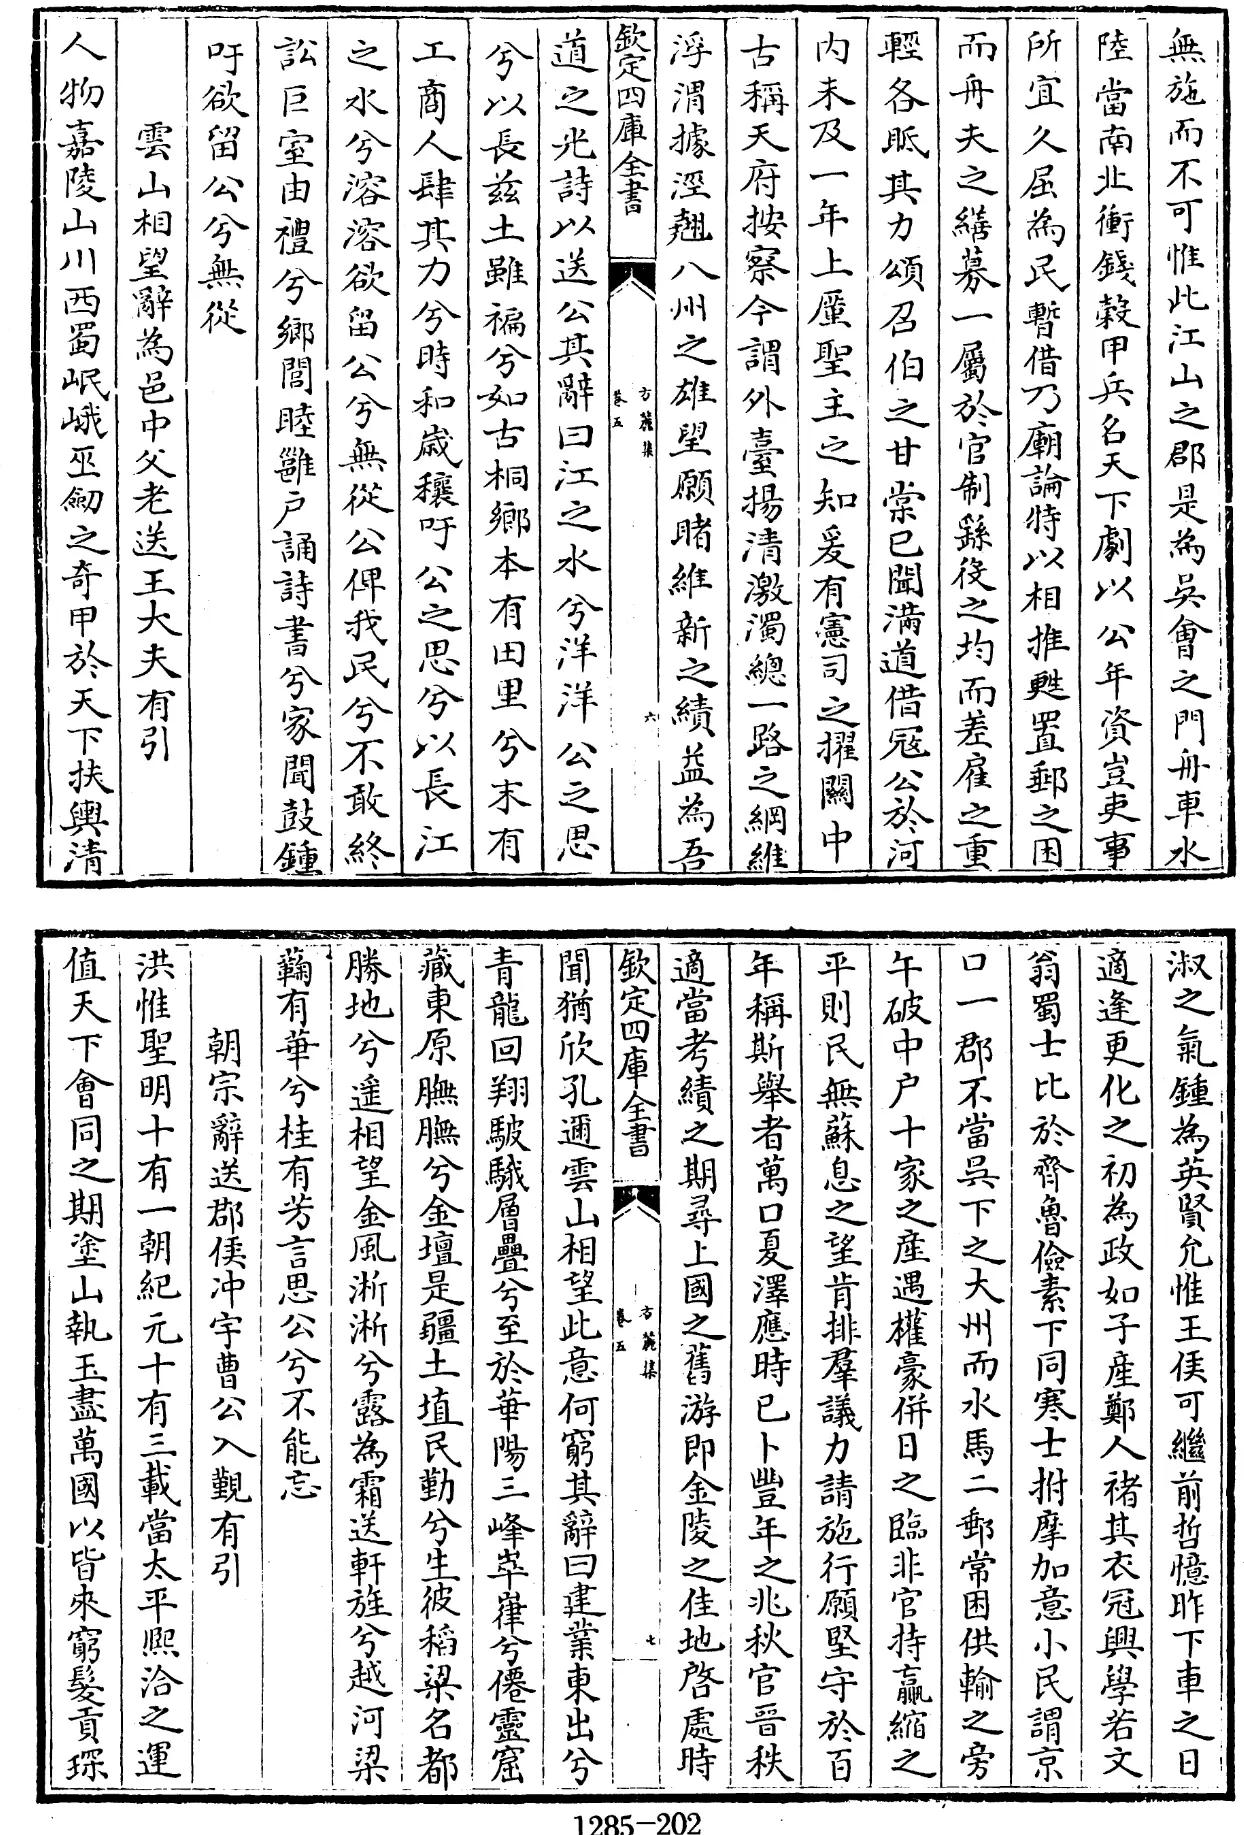 無施而不可惟此江山之郡是為吳會之門舟車水
陸當南北衝錢穀甲兵名天下劇以公年資豈吏事
所宜久屈為民暫借乃廟論特以相推甦置郵之困
而舟夫之繕募一屬於官制繇役之均而差雇之重
輕各眂其力頌召伯之甘棠已聞滿道借冦公於河
内未及一年上厪聖主之知爰有憲司之擢關中
古稱天府按察今謂外臺揚清激濁總一路之綱維
浮渭據涇翹八州之雄望願睹維新之績益為吾
欽定四庫全書
方麓集
卷五
六
道之光詩以送公其辭曰江之水兮洋洋公之思
兮以長兹土雖褊兮如古桐鄉本有田里兮末有
工商人肆其力兮時和嵗穰吁公之思兮以長江
之水兮溶溶欲留公兮無從公俾我民兮不敢終
訟巨室由禮兮鄉閭睦雝户誦詩書兮家聞鼓鍾
吁欲留公兮無從
雲山相望辭為邑中父老送王大夫有引
人物嘉陵山川西蜀岷峨巫劒之奇甲於天下扶輿清
淑之氣鍾為英賢允惟王侯可繼前哲憶昨下車之日
適逢更化之初為政如子產鄭人褚其衣冠興學若文
翁蜀士比於齊魯儉素下同寒士拊摩加意小民謂京
口一郡不當吳下之大州而水馬二郵常困供輸之旁
午破中户十家之產遇權豪併日之臨非官持贏縮之
平則民無蘇息之望肯排羣議力請施行願堅守於百
年稱斯舉者萬口夏澤應時已卜豐年之兆秋官晋秩
適當考績之期尋上國之舊游即金陵之佳地啓處時
欽定四庫全書
方麓集
卷五
七
聞猶欣孔邇雲山相望此意何窮其辭曰建業東出兮
青龍回翔駊騀層疊兮至於華陽三峰崒嵂兮僊靈窟
藏東原膴膴兮金壇是疆土埴民勤兮生彼稻粱名都
勝地兮遥相望金風淅淅兮露為霜送軒旌兮越河梁
蘜有華兮桂有芳言思公兮不能忘
朝宗辭送郡侯冲宇曹公入覲有引
洪惟聖明十有一朝紀元十有三載當太平熈洽之運
值天下會同之期塗山執玉盡萬國以皆來窮髮貢琛
1285-202